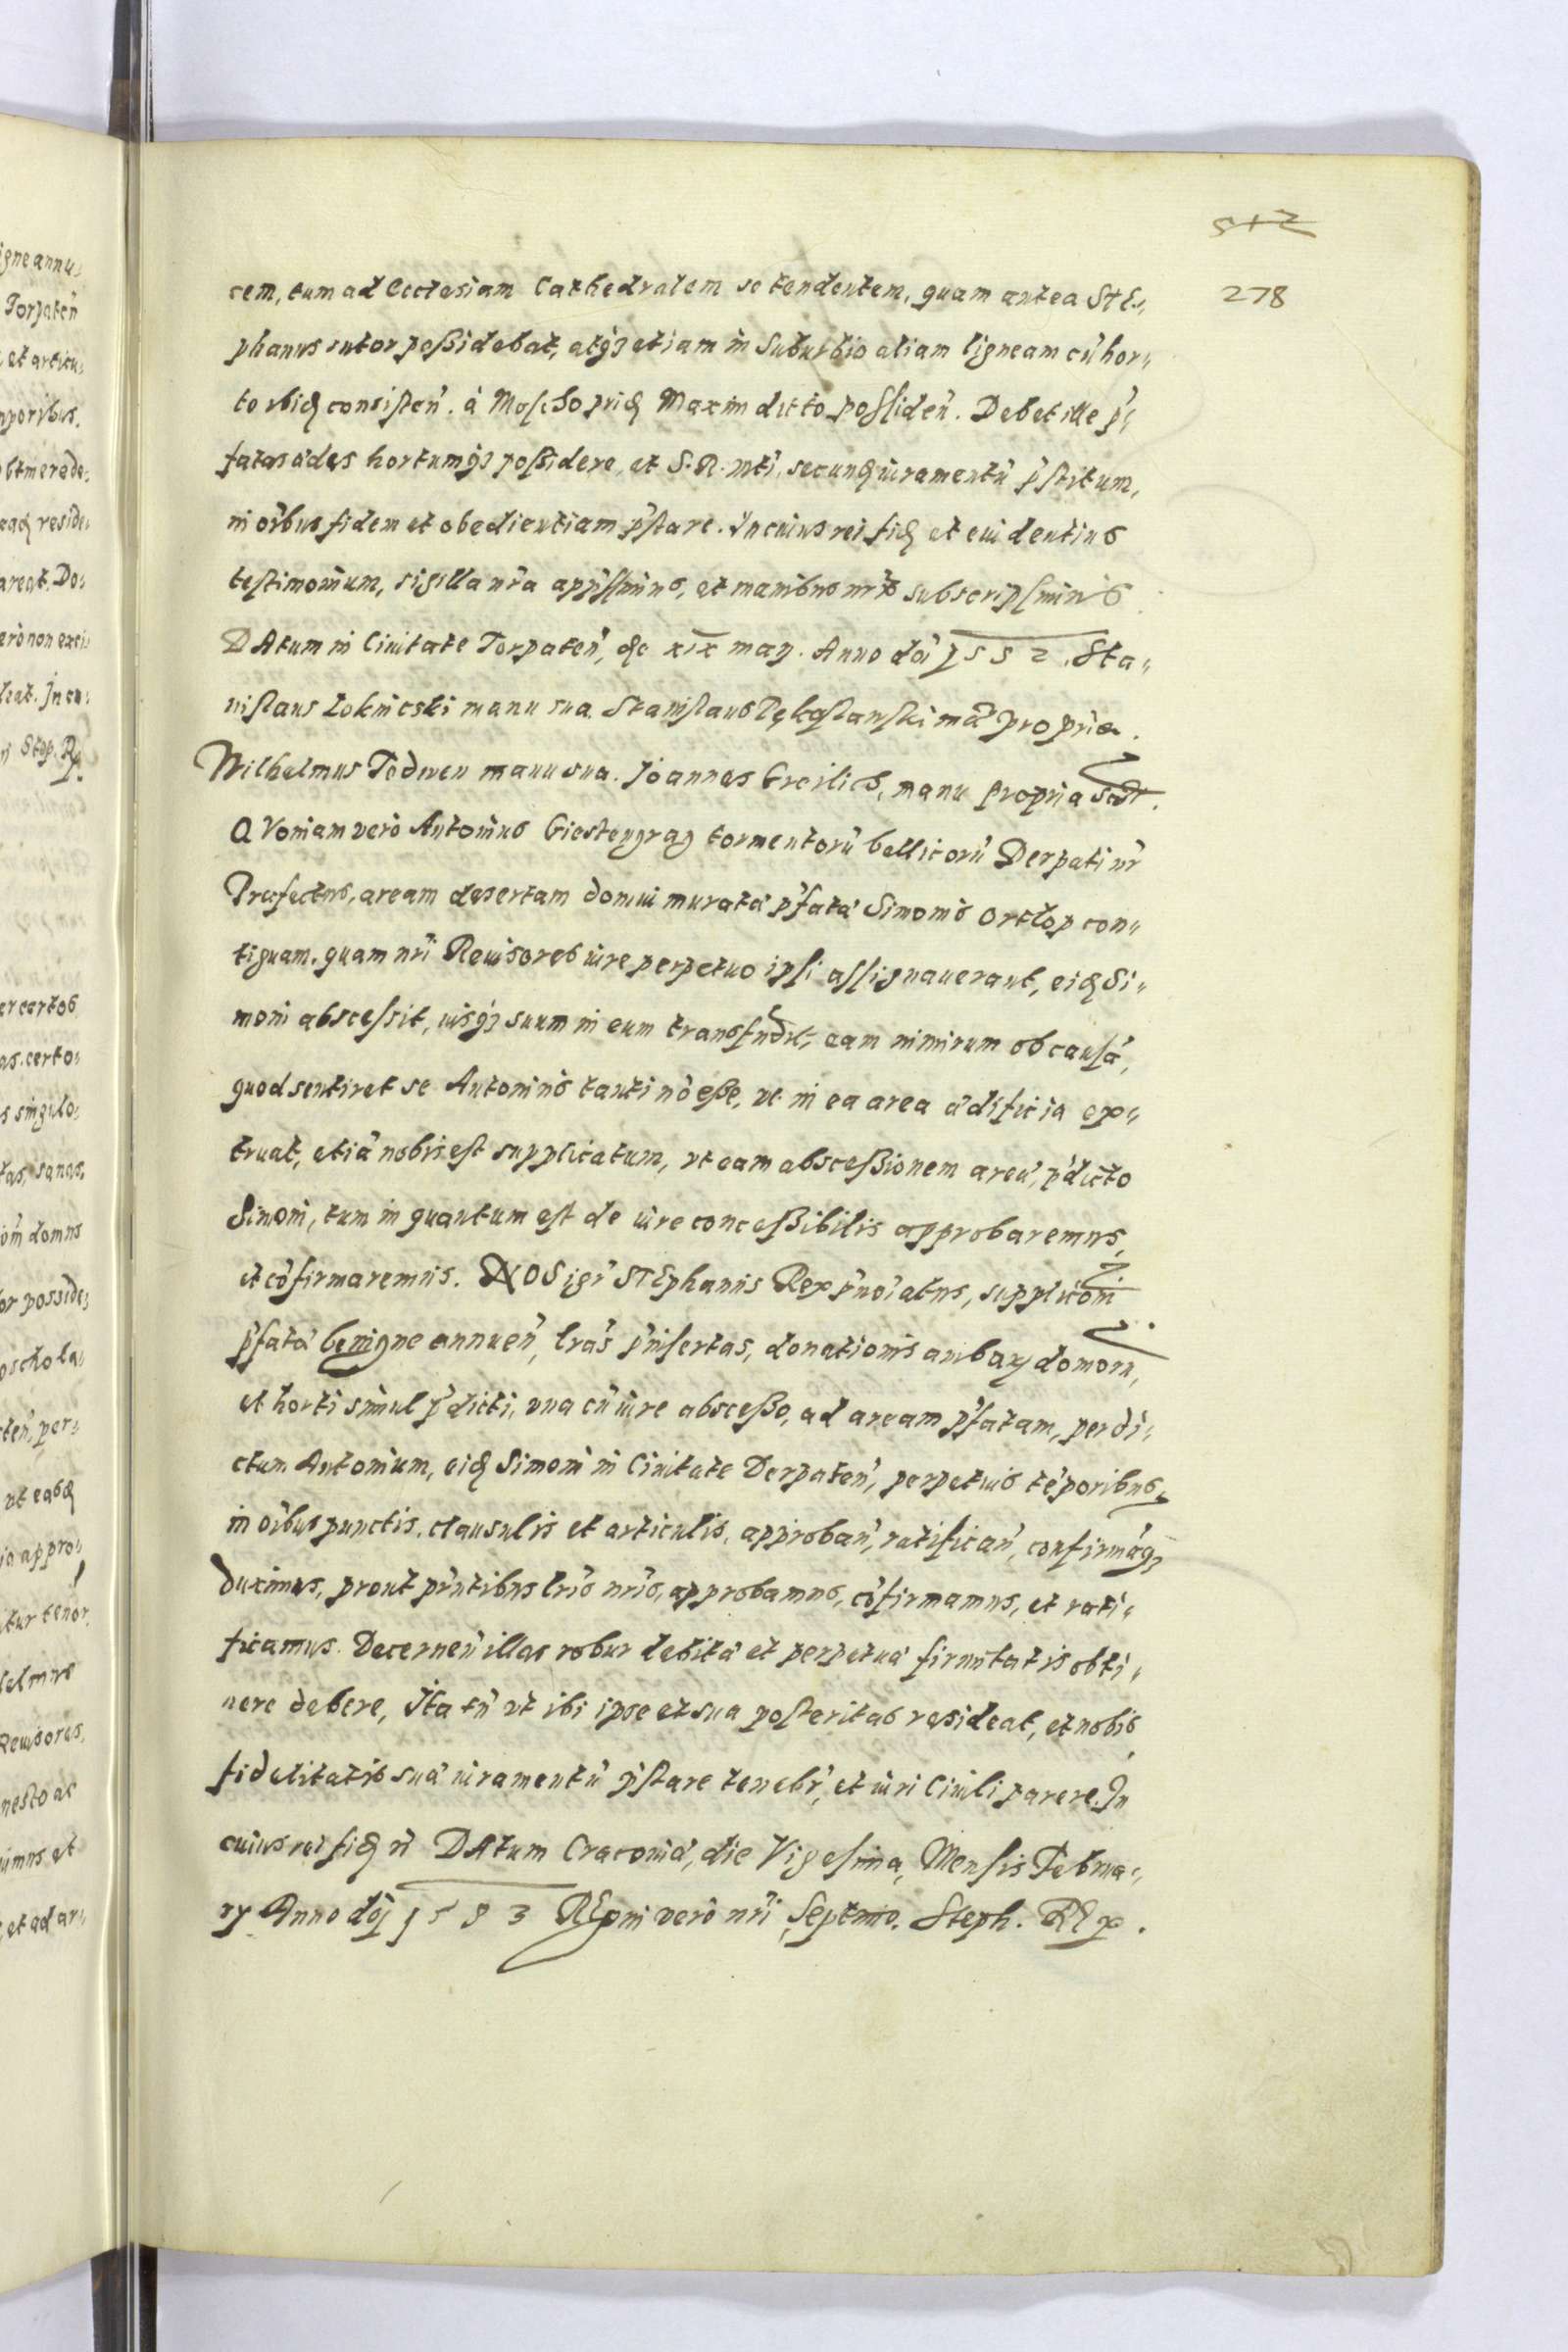 512
278
cem, tum ad Ecclesiam Cathedralem se tendentem, quam antea StE,,
phanus sutor poßidebat, atq3 etiam in Suburbio aliam ligneam cu' hor,,
to ibid consisten'. à Moscho prid Maxim dicto possiden'. Debet ille p',
fatas ædes hortumq3 poßidere, et S. R. Mti, secund iuramentu' p'stitum,
in oi'bus fidem et obedientiam p'stare. In cuius rei fid et euidentius
testimonium, sigilla nr'a appressimus, et manibus nr'is subscripsimus
DAtum in Ciuitate Torpaten', de xix may. Anno do'i 1582. Sta,,
nislaus Loknicski manu sua. Stanislaus Pękoslanski ma' propria.
Wilhelmus Todwen manu sua. Joannes Greilich, manu propria sst.
QVoniam verò Antonius Giestengraz tormentoru' bellicoru' Derpati nr'
Præfectus, aream desertam domui muratæ p'fatæ Simonis Ortlop con,,
tiguam. quam nri' Reuisores iure perpetuo ipsi assignauerant, eid Si,,
moni abscessit, iusq3 suum in eum transfudit, eam nimirum ob causa',
quod sentiret se Antonius tanti no' eße, vt in ea area ædificia ex,,
truat, etia' nobis est supplicatum, vt eam absceßionem areæ, p'dicto
Simoni, tum in quantum est de iure conceßibilis approbaremus,
et co'firmaremus. NOS igr' STEphanus Rex p'noi'atus, suppliconi
p'fatæ benigne annuen', lra's p'insertas, donationis ambar domoru,
et horti simul p'dicti, vna cu' iure absceßo, ad aream p'fatam, per di,,
ctum Antonium, eid Simoni in Ciuitate Derpaten', perpetuis te'poribus,
in oi'bus punctis, clausulis et articulis, approban', ratifican', confirma'q3
duximus, prout p'ntibus lri's nri's, approbamus, co'firmamus, et rati,,
ficamus. Decernen' illas robur debitæ et perpetuæ firmitatis obti,,
nere debere, Ita tn' vt ibi ipse et sua posteritas resideat, et nobis
fidelitatis suæ iuramentu' p'stare tenebr', et iuri Ciuili parere. In
cuius rei fid n' DAtum Cracouiæ, die Vigesima, Mensis Februa,,
ry Anno do'j 1583 REgni verò nri' Septimo. Steph. REx.